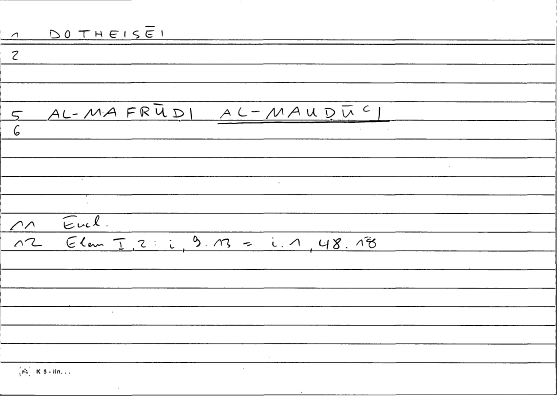 1 DOTHEISĒI
2
5 AL-MAFRŪDI AL-MAUDŪᶜI
6
11 Eucl.
12 Elem I, 2: i, 9.13 = i.1, 48.18